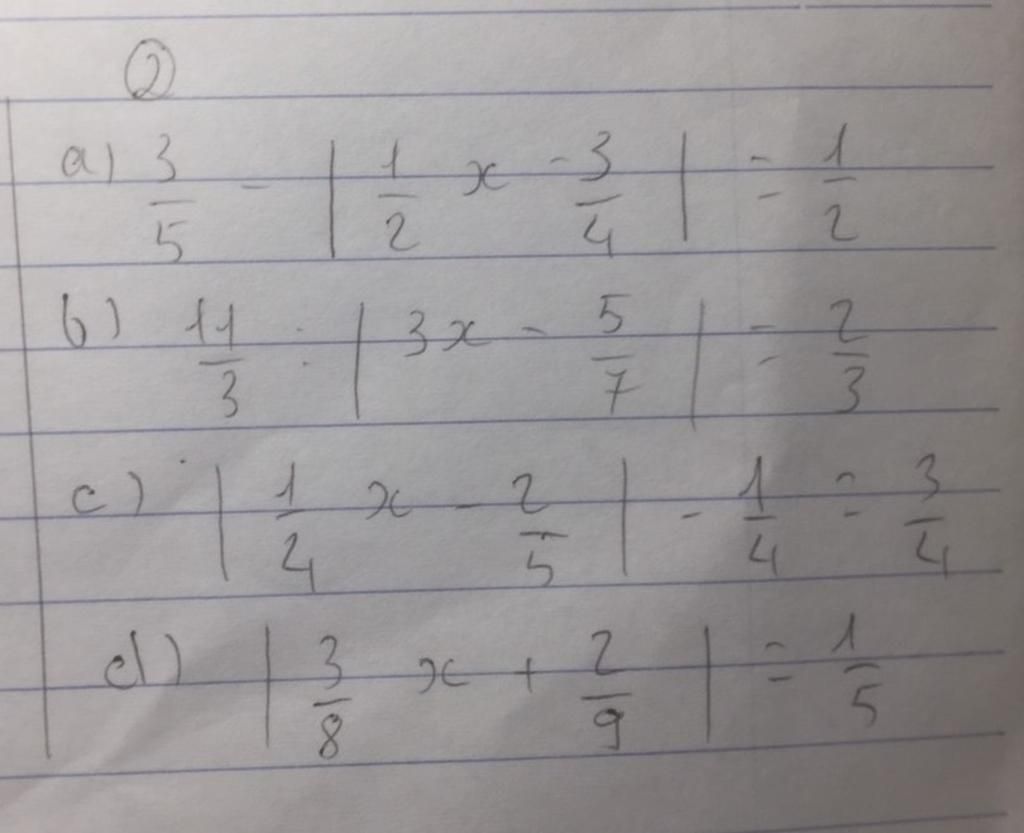 ②
a) 3/5 - | 1/2 x - 3/4 | = 1/2
b) 11/3 : | 3x - 5/7 | = 2/3
c) | 1/4 x - 2/5 | - 1/4 = 3/4
d) | 3/8 x + 2/9 | = 1/5